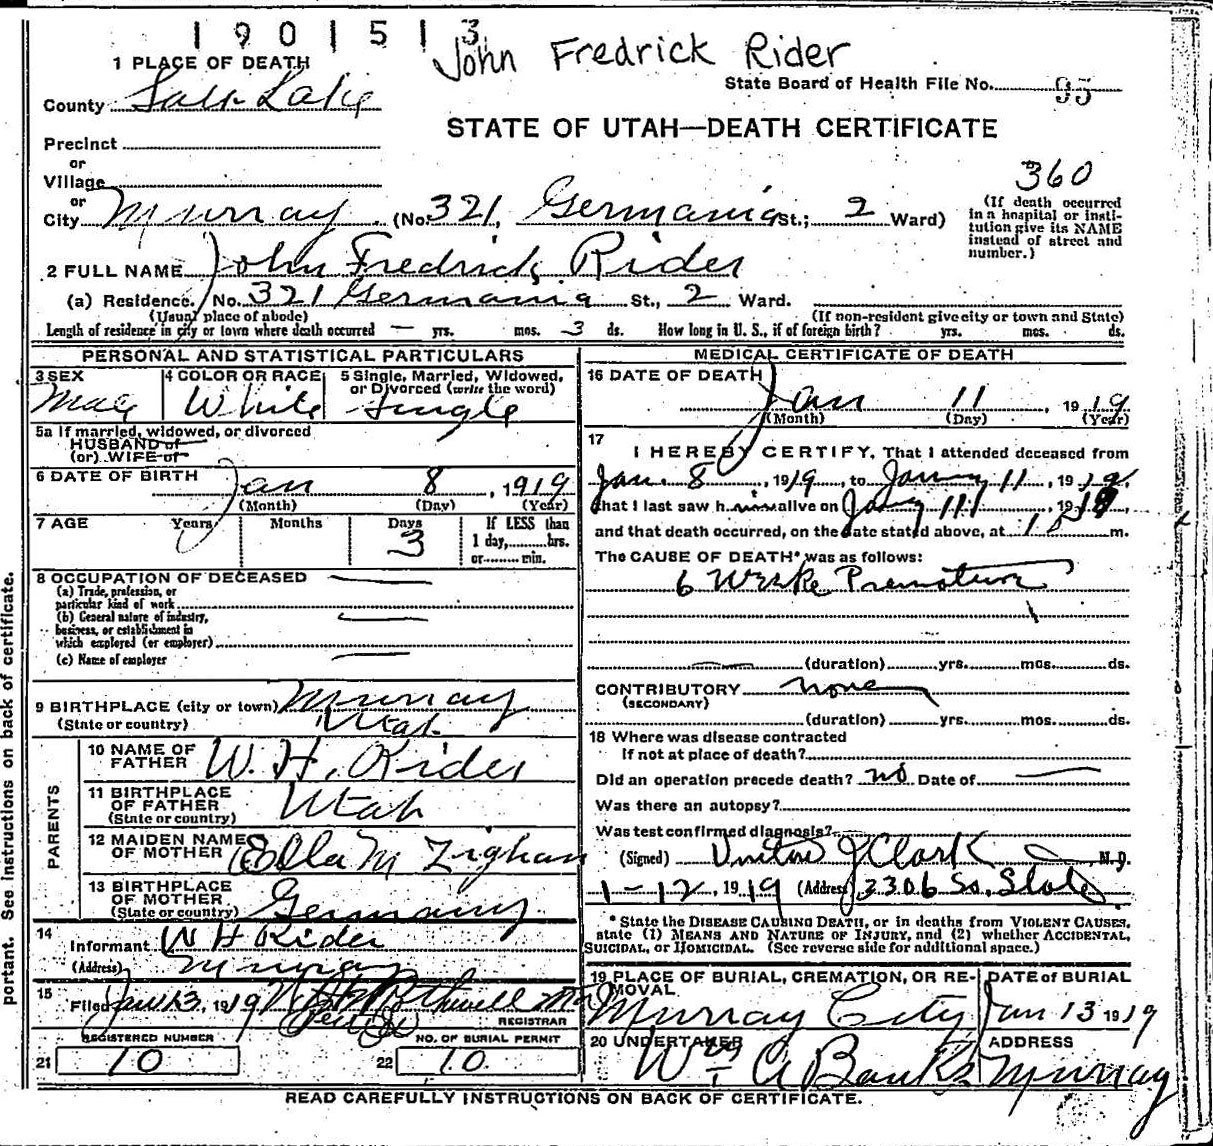 1901513
John Fredrick Rider
1 PLACE OF DEATH
State Board of Health File No. 95
County Salt Lake
STATE OF UTAH—DEATH CERTIFICATE
Precinct
or
Village
360
or
City Murray (No. 321, Germania St.; 2 Ward)
(If death occurred in a hospital or insti-tution give its NAME instead of street and number.)
2 FULL NAME John Fredrick Rider
(a) Residence. No. 321 Germania St., 2 Ward.
(Usual place of abode) (If non-resident give city or town and State)
Length of residence in city or town where death occurred — yrs. mos. 3 ds. How long in U. S., if of foreign birth? yrs. mos. ds.
PERSONAL AND STATISTICAL PARTICULARS
3 SEX 4 COLOR OR RACE 5 Single, Married, Widowed, or Divorced (write the word)
Male White Single
5a If married, widowed, or divorced
HUSBAND of
(or) WIFE of
6 DATE OF BIRTH Jan 8, 1919
(Month) (Day) (Year)
7 AGE Years Months Days If LESS than
3 1 day, hrs.
or min.
8 OCCUPATION OF DECEASED —
(a) Trade, profession, or
particular kind of work
(b) General nature of industry, —
business, or establishment in
which employed (or employer)
(c) Name of employer —
9 BIRTHPLACE (city or town) Murray
(State or country) Utah
PARENTS
10 NAME OF FATHER W. H. Rider
11 BIRTHPLACE OF FATHER (State or country) Utah
12 MAIDEN NAME OF MOTHER Ella M
13 BIRTHPLACE OF MOTHER (State or country) Germany
14 Informant W H Rider
(Address) Murray
15 Filed Jan 13, 1919
REGISTRAR
REGISTERED NUMBER NO. OF BURIAL PERMIT
21 10 22 10
MEDICAL CERTIFICATE OF DEATH
16 DATE OF DEATH
Jan 11, 1919
(Month) (Day) (Year)
17 I HEREBY CERTIFY, That I attended deceased from
Jan. 8, 1919, to 11, 1919
that I last saw h alive on 11, 19
and that death occurred, on the date stated above, at m.
The CAUSE OF DEATH* was as follows:
6 Premature
(duration) yrs. mos. ds.
CONTRIBUTORY none
(SECONDARY)
(duration) yrs. mos. ds.
18 Where was disease contracted
if not at place of death?
Did an operation precede death? no Date of —
Was there an autopsy?
Was test confirmed diagnosis?
(Signed) J Clark M.D.
1-12, 1919 (Address) 3306 So. State
*State the DISEASE CAUSING DEATH, or in deaths from VIOLENT CAUSES,
state (1) MEANS AND NATURE OF INJURY, and (2) whether ACCIDENTAL,
SUICIDAL, or HOMICIDAL. (See reverse side for additional space.)
19 PLACE OF BURIAL, CREMATION, OR RE-MOVAL DATE of BURIAL
Murray City Jan 13 1919
20 UNDERTAKER ADDRESS
Wm A Banks Murray
READ CAREFULLY INSTRUCTIONS ON BACK OF CERTIFICATE.
portant. See instructions on back of certificate.